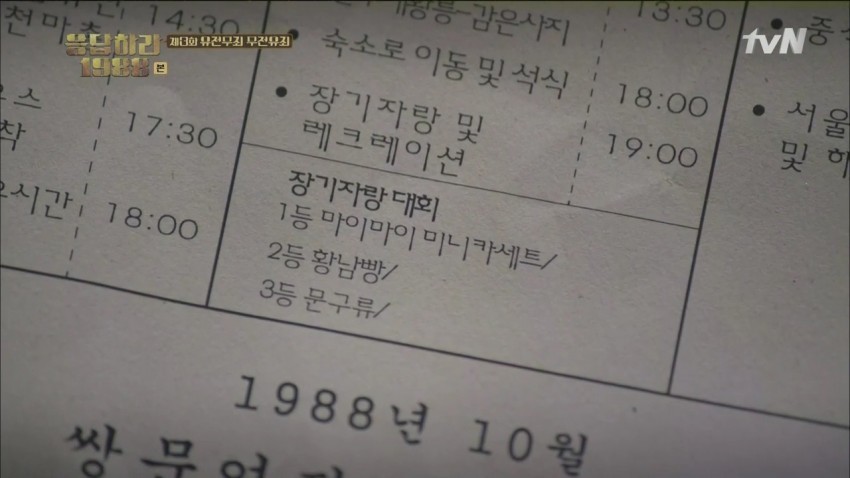 응답하라
1988 본
제3회 유전무죄 무전유죄
tvN
14:30
천마총
17:30
착
18:00
13:30
숙소로 이동 및 석식
18:00
• 장기자랑 및
레크레이션
19:00
장기자랑 대회
1등 마이마이 미니카세트/
2등 황남빵/
3등 문구류/
• 서울
및
1988년 10월
쌍문여